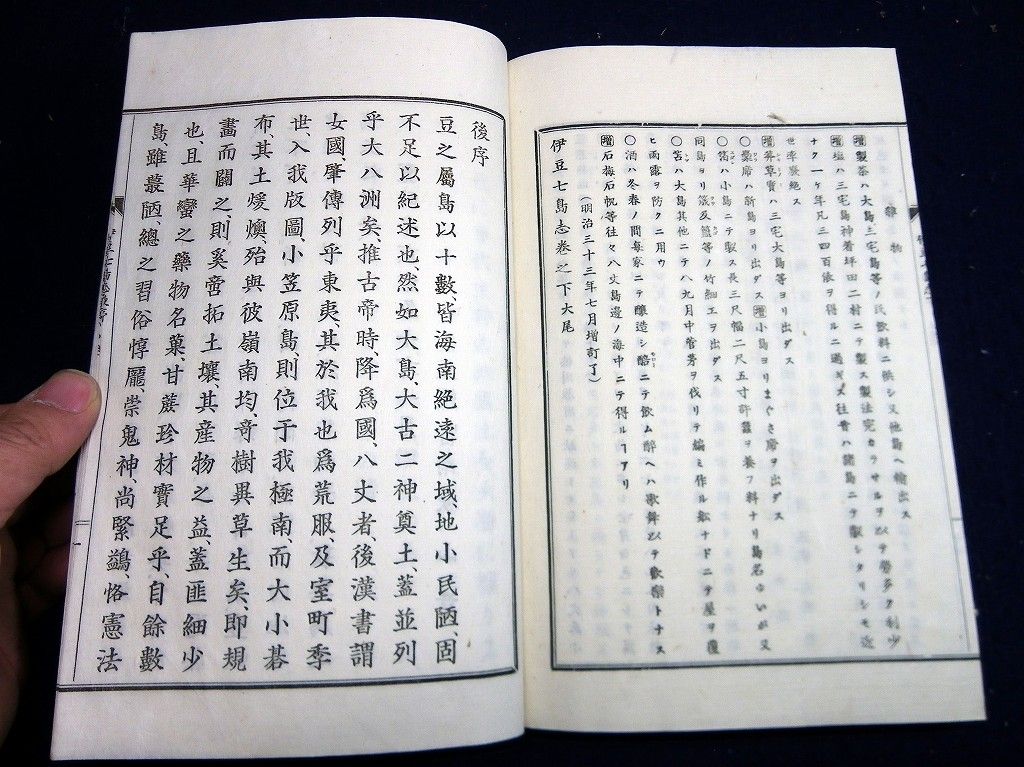 雜物
増製茶ハ大島三宅島等ノ民飮料ニ供シ又他島ヘ輸出ス
増塩ハ三宅島神着坪田二村ニテ製ス製法完カラサルヲ以テ勞多ク利少
ナク一ケ年凡三四百俵ヲ得ルニ過ギズ往昔ハ諸島ニテ製シタリシモ近
世率子絶ス
増昇草實ハ三宅大島等ヨリ出ダス
○藁席ハ新島ヨリ出ダス増小島ヨリまぐさ席ヲ出ダス
○筥ハ小島ニテ製ス長三尺幅二尺五寸許蠶ヲ養フ料ナリ島名ゆいが又
同島ヨリ筬及簠等ノ竹細工ヲ出ダス
○苫ハ大島其他ニテハ八九月中菅茅ヲ伐リテ編ミ作ル舩ナドニテ屋ヲ覆
ヒ雨露ヲ防クニ用ウ
○酒ハ冬春ノ間毎家ニテ釀造シ醅ニテ飮ム醉ヘハ歌舞ヲ以テ歡樂トナス
増石梅石帆等往々八丈島邊ノ海中ニテ得ルヿアリ
(明治三十三年七月增訂了)
伊豆七島志卷之下大尾
後序
豆之屬島以十數、皆海南絶遠之域、地小民陋、固
不足以紀述也、然如大島、大古二神奠土、蓋並列
乎大八洲矣、推古帝時、降爲國、八丈者、後漢書謂
女國、肇傳列乎東夷、其於我也爲荒服、及室町季
世、入我版圖、小笠原島、則位于我極南、而大小碁
布、其土煖燠、殆與彼嶺南均、奇樹異草生矣、即規
畫而闢之、則奚啻拓土壤、其産物之益、蓋匪細少
也、且華蠻之藥物名菓、甘蔗珍材實足乎、自餘數
島、雖蕞陋總之習俗惇龎、崇鬼神、尚緊鷁、恪憲法